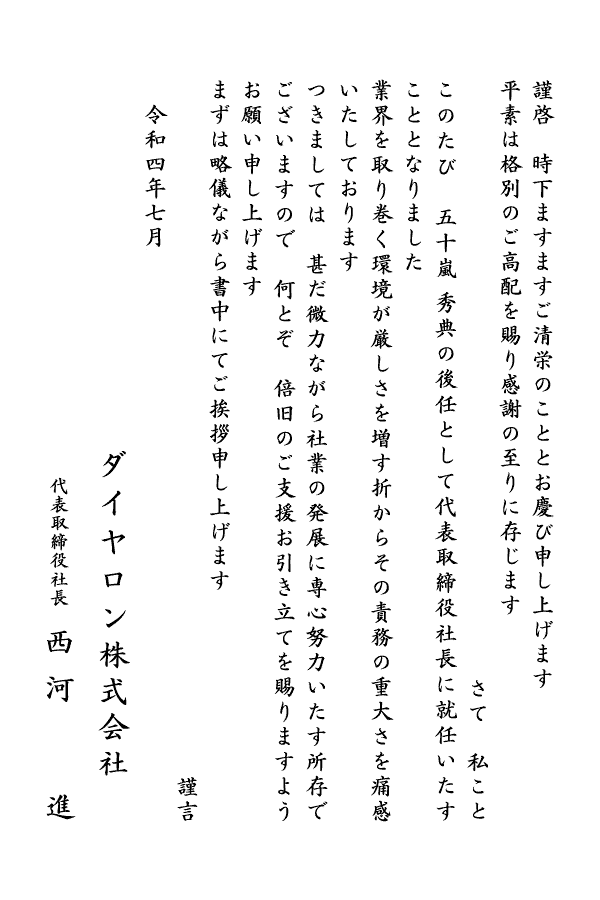 謹啓　時下ますますご清栄のこととお慶び申し上げます
平素は格別のご高配を賜り感謝の至りに存じます
さて　私こと
このたび　五十嵐 秀典の後任として代表取締役社長に就任いたす
こととなりました
業界を取り巻く環境が厳しさを増す折からその責務の重大さを痛感
いたしております
つきましては　甚だ微力ながら社業の発展に専心努力いたす所存で
ございますので　何とぞ　倍旧のご支援お引き立てを賜りますよう
お願い申し上げます
まずは略儀ながら書中にてご挨拶申し上げます
謹言
令和四年七月
ダイヤロン株式会社
代表取締役社長　西河　進